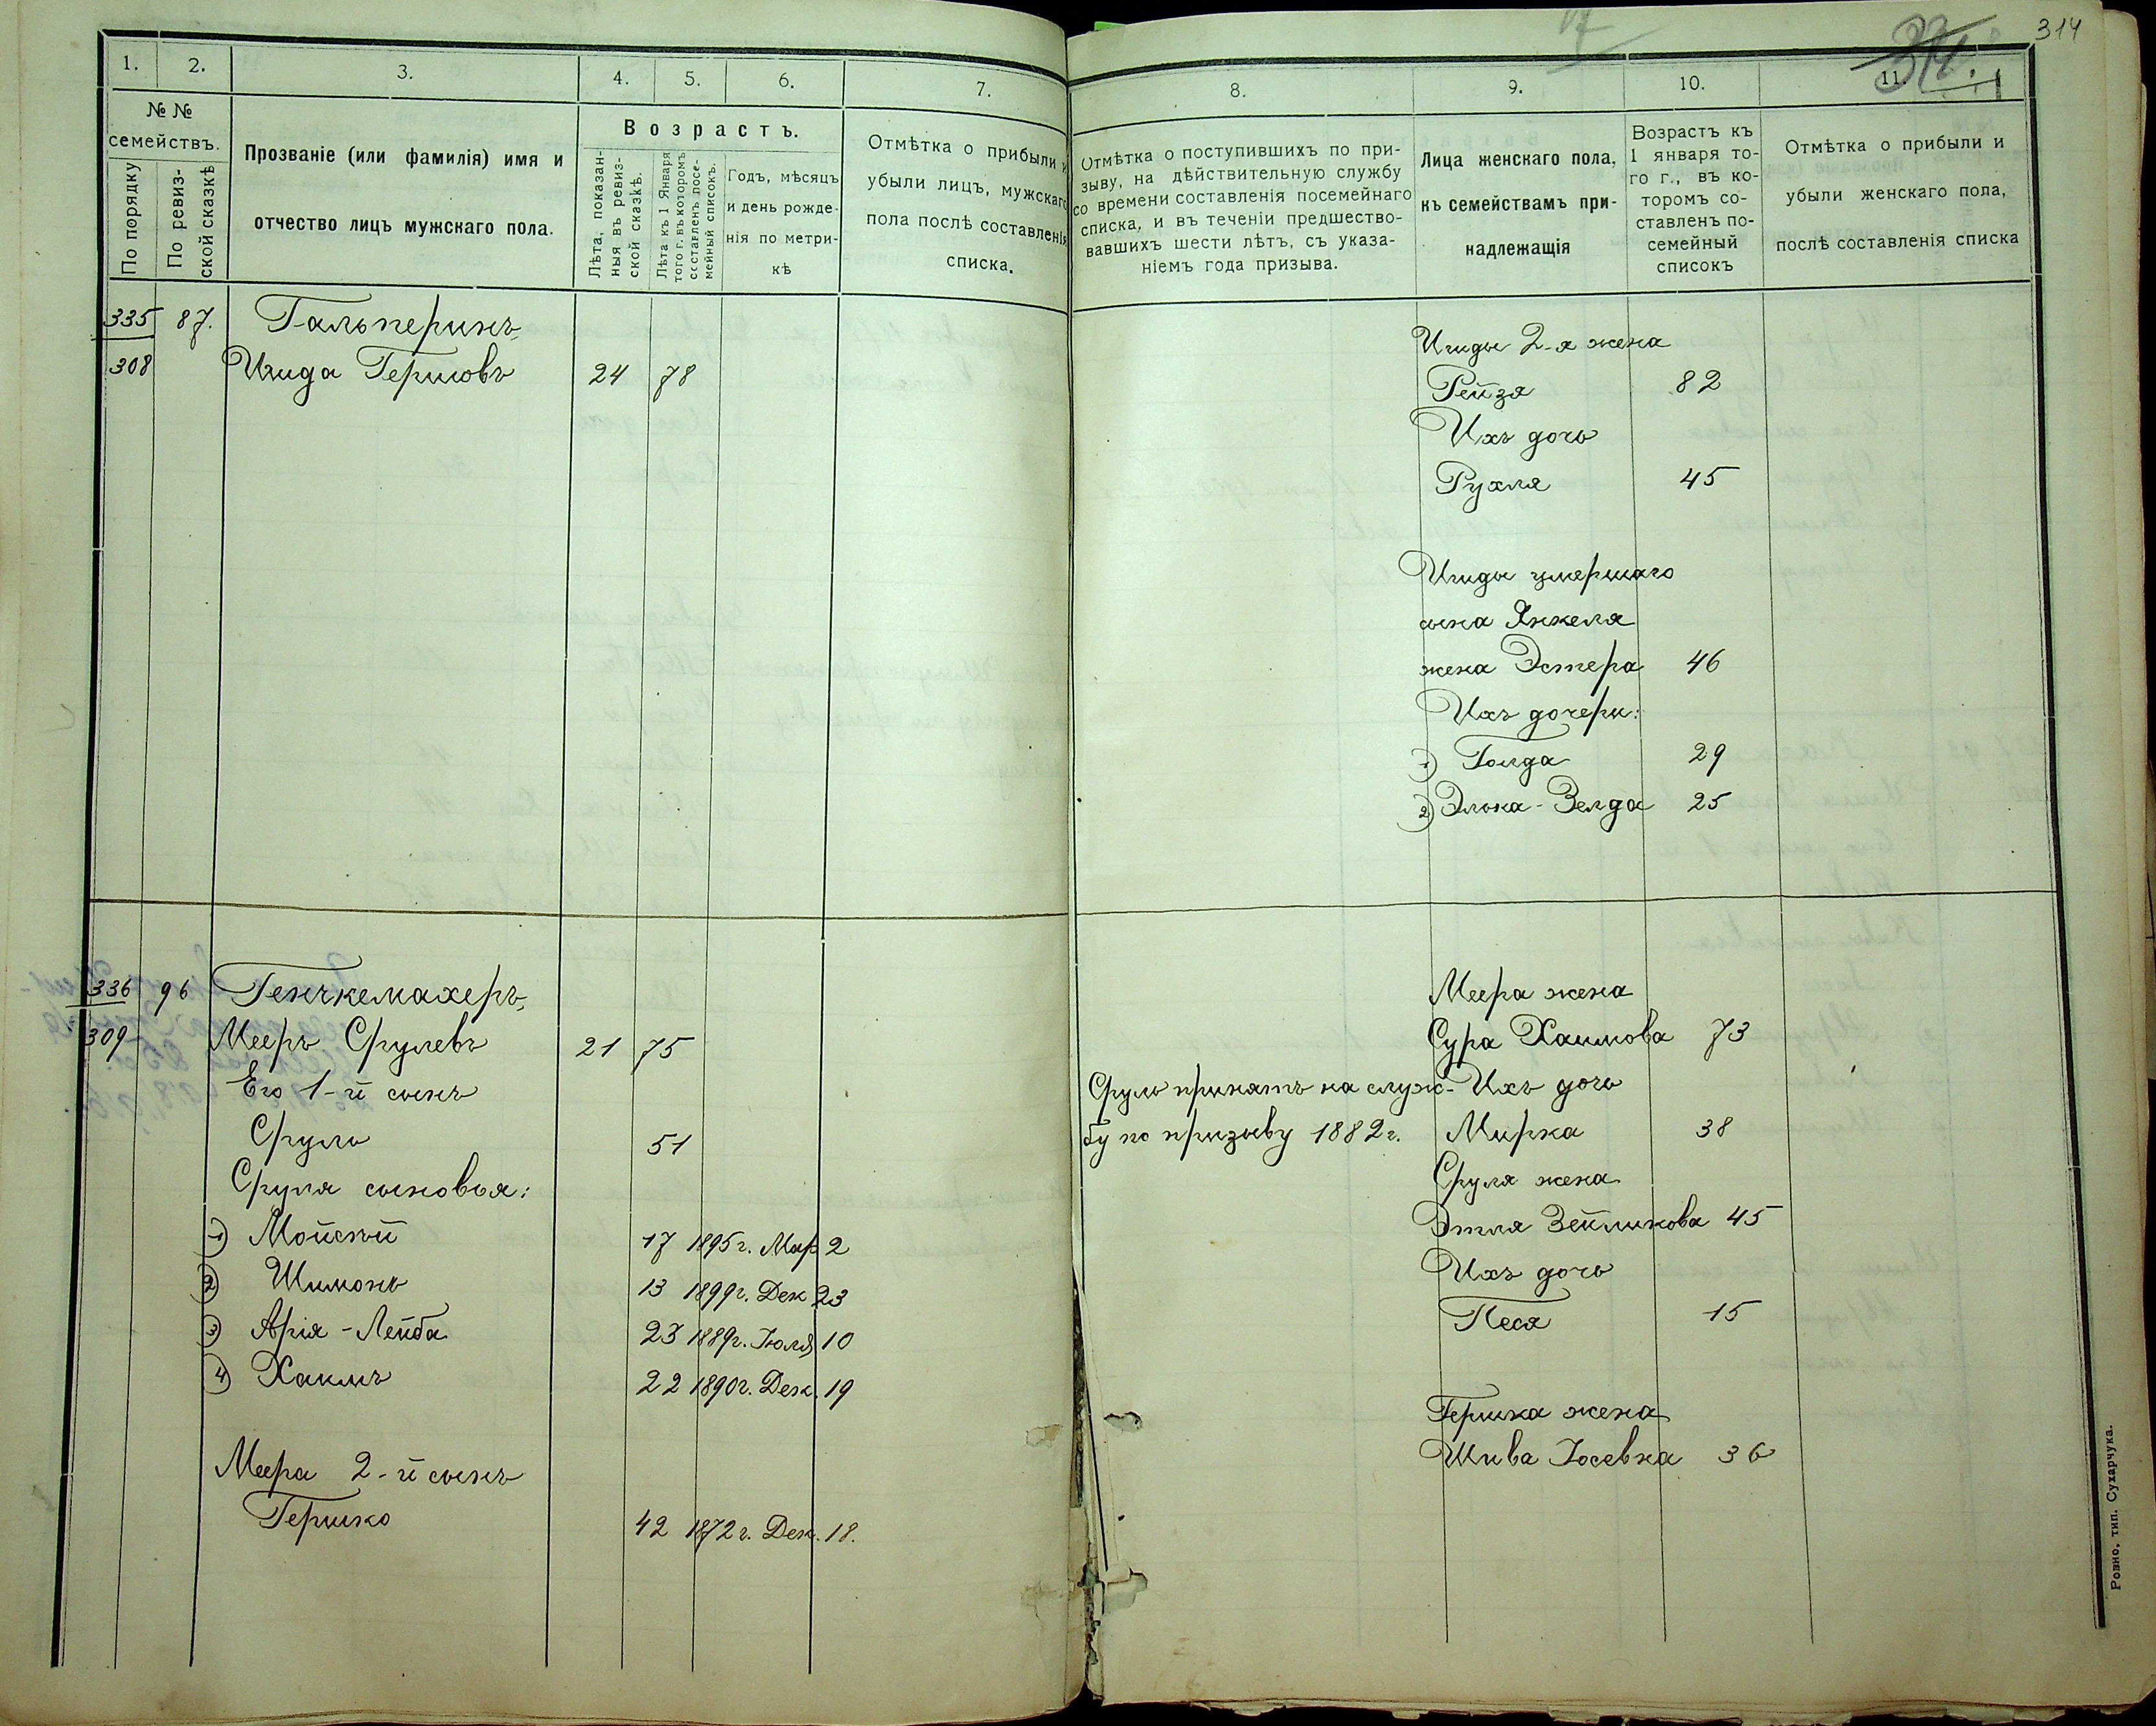 314
314.
1.
2.
3.
4.
5.
6.
7.
8.
9.
10.
11.
№ №
семействъ.
По порядку
По ревиз-
ской сказкѣ
Прозваніе (или фамилія) имя и
отчество лицъ мужскаго пола.
Возрастъ.
Лѣта, показан-
ныя въ ревиз-
ской сказкѣ.
Лѣта къ 1 Января
того г. въ которомъ
составленъ посе-
мейный списокъ.
Годъ, мѣсяцъ
и день рожде-
нія по метри-
кѣ
Отмѣтка о прибыли и
убыли лицъ, мужскаго
пола послѣ составленія
списка.
Отмѣтка о поступившихъ по при-
зыву, на дѣйствительную службу
со времени составленія посемейнаго
списка, и въ теченіи предшество-
вавшихъ шести лѣтъ, съ указа-
ніемъ года призыва.
Лица женскаго пола,
къ семействамъ при-
надлежащія
Возрастъ къ
1 января то-
го г., въ ко-
торомъ со-
ставленъ по-
семейный
списокъ
Отмѣтка о прибыли и
убыли женскаго пола,
послѣ составленія списка
335 87. Гальперинъ
308 Ицида Гершовъ 24 78
Ициды 2-я жена
Рейзя 82
Ихъ дочь
Рухля 45
Ициды умершаго
сына Янкеля
жена Эстера 46
Ихъ дочери:
1) Голда 29
2) Элька-Зелда 25
336 96 Генчкемахеръ
309 Мееръ Срулевъ 21 75
Его 1-й сынъ
Сруль 51
Сруля сыновья:
1) Мойсѣй 17 1895г. Мар 2
2) Шимонъ 13 1899г. Дек 23
3) Арія-Лейба 23 1889г. Іюля 10
4) Хаимъ 22 1890г. Дек. 19
Меера 2-й сынъ
Гершко 42 1872г. Дек. 18.
Сруль принятъ на служ-
бу по призыву 1882г.
Меера жена
Сура Хаимова 73
Ихъ дочь
Мирка 38
Сруля жена
Этля Зейликова 45
Ихъ дочь
Песя 15
Гершка жена
Шива Іосевна 36
Ровно, тип. Сухарчука.